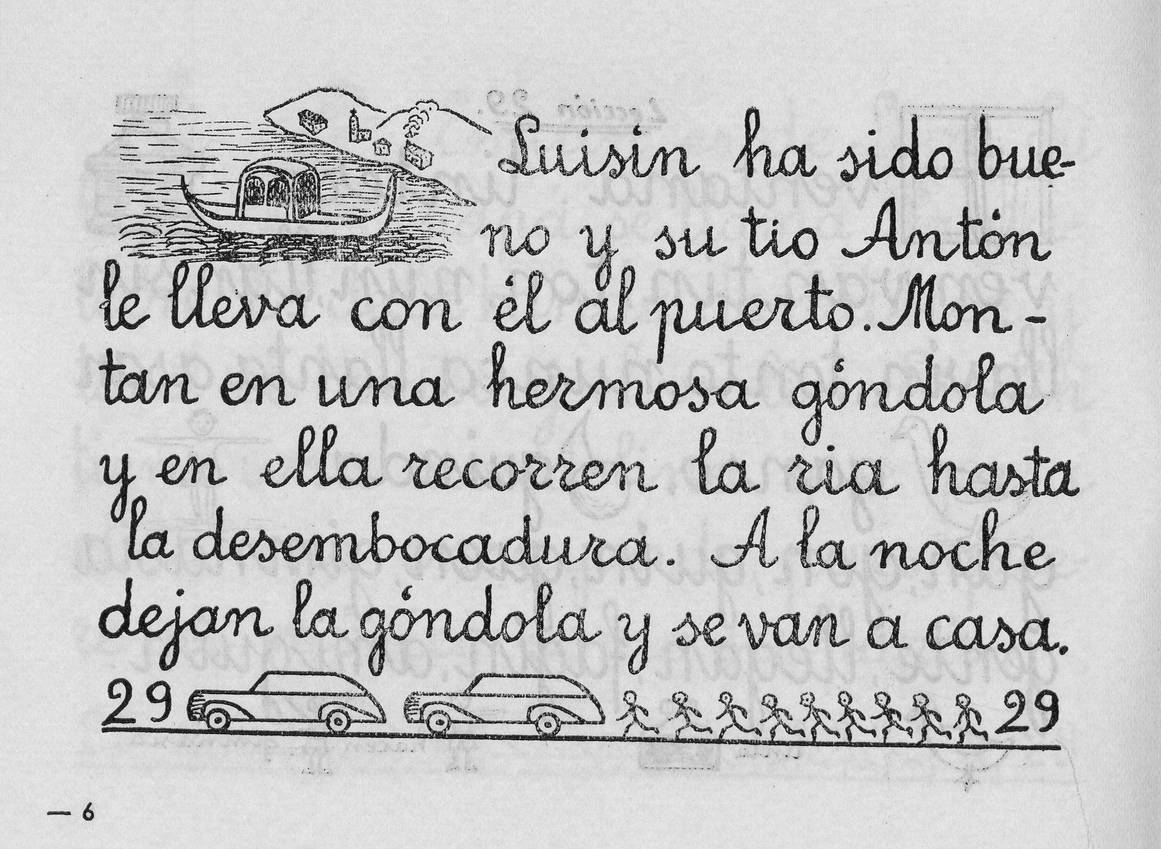 Luisín ha sido bue-
no y su tío Antón
le lleva con él al puerto. Mon-
tan en una hermosa góndola
y en ella recorren la ria hasta
la desembocadura. A la noche
dejan la góndola y se van a casa.
29 29
— 6